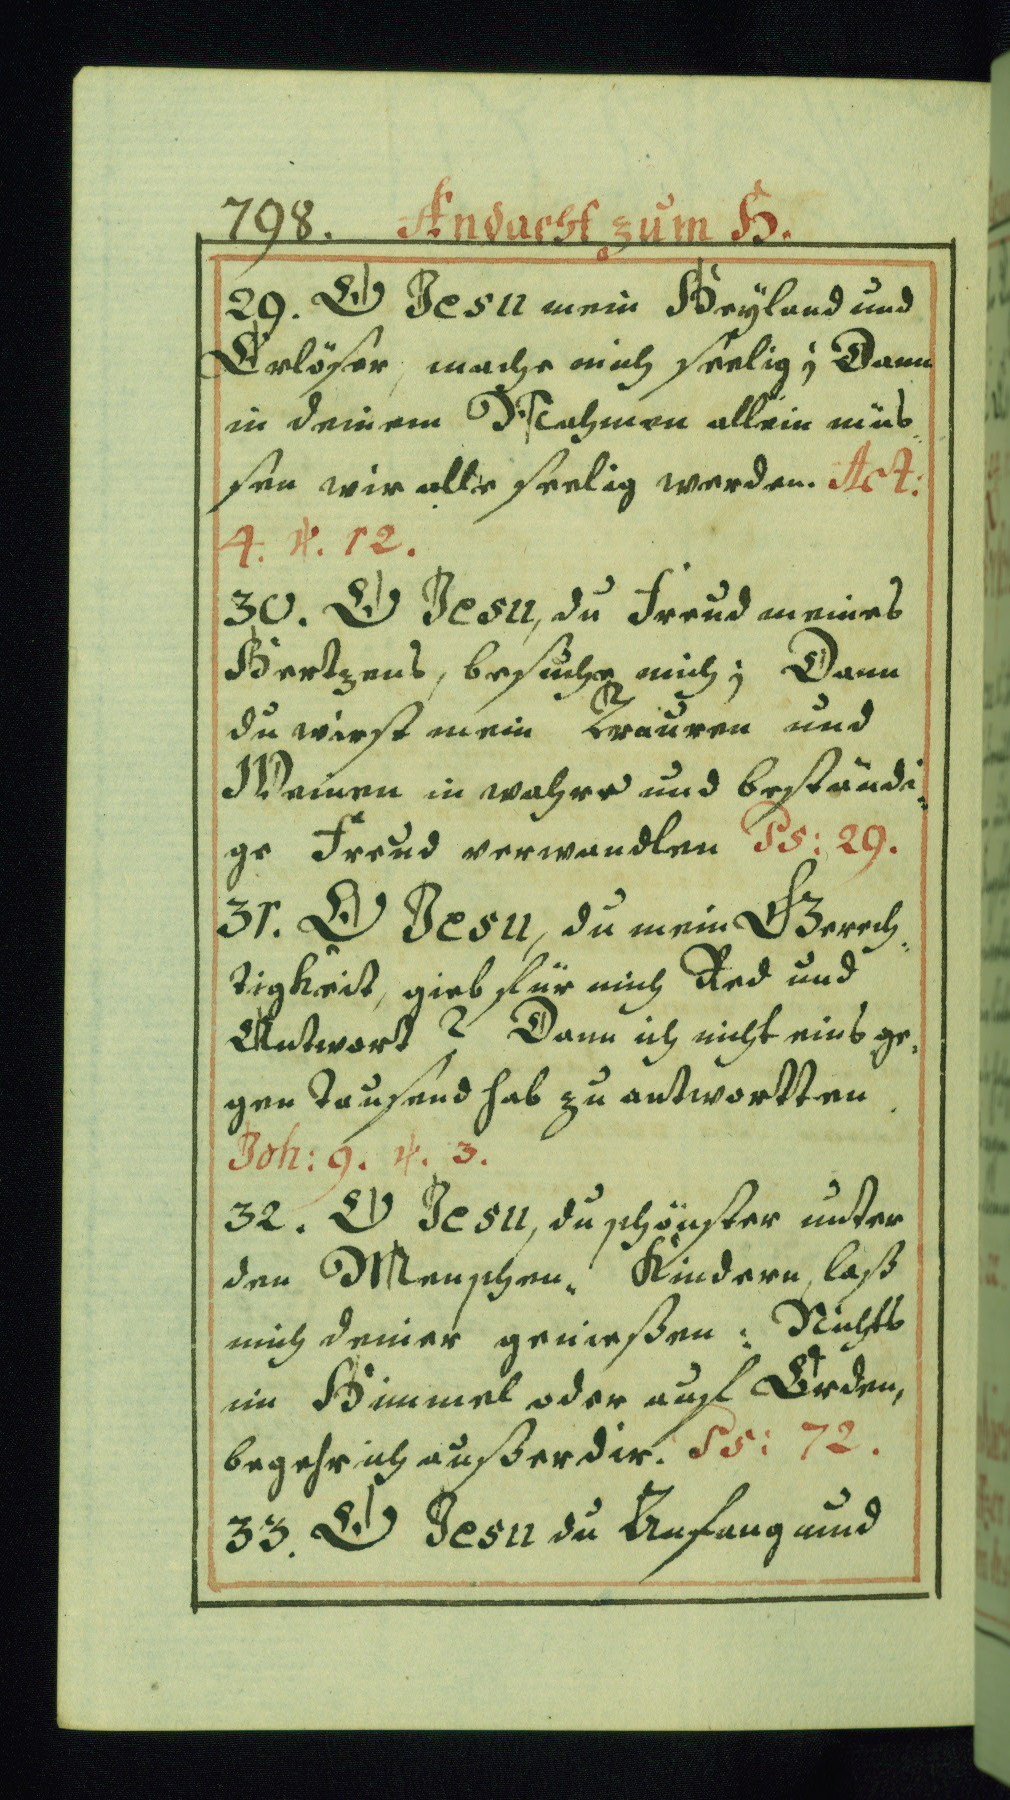 798. Andacht zum H.
29. O Jesu mein Heyland und
Erlöser, mache mich seelig; Dann
in deinem Nahmen allein müs,
sen wir alle seelig werden. Act:
4. ℣. 12.
30. O Jesu, du Freud meines
Hertzens, besuche mich; Dann
du wirst mein Trauren und
Weinen in wahre und beständi,
ge Freud verwandlen Ps: 29.
31. O Jesu, du mein Gerech,
tigkeit, gieb für mich Red und
Antwort? Dann ich nicht eins ge,
gen tausend hab zu antwortten.
Joh: 9. ℣. 3.
32. O Jesu, du schönster unter
den Menschen, Kindern, laß
mich deiner genießen: Nichts
im Himmel oder auf Erden,
begehr ich außer dir. Ps: 72.
33. O Jesu du Anfang und